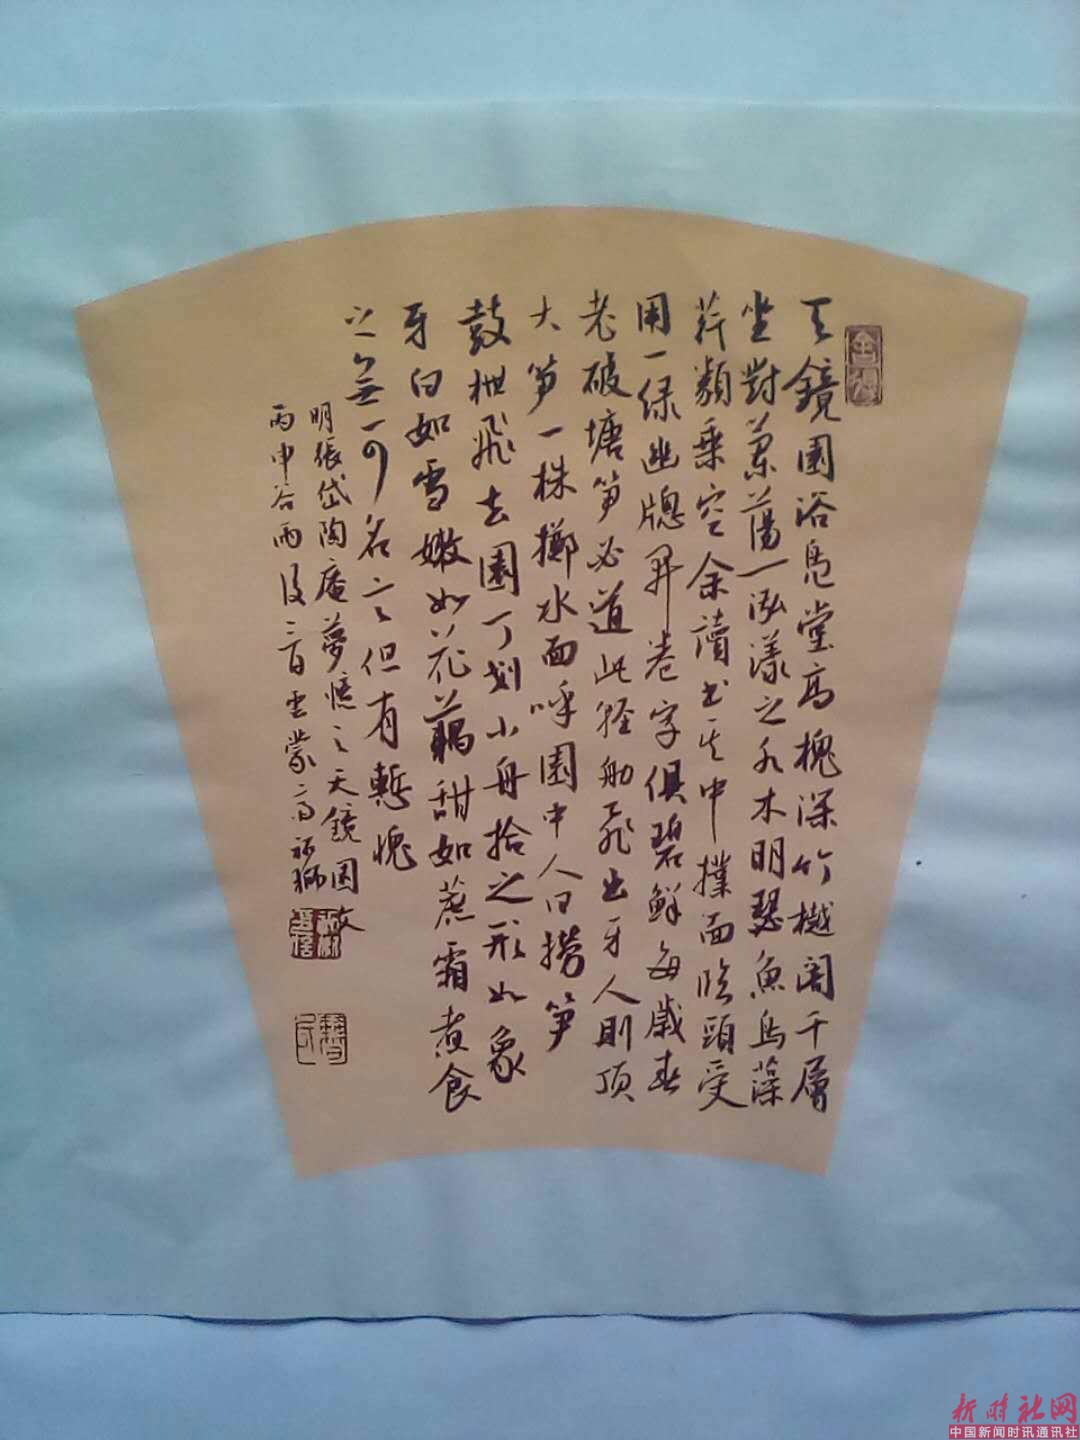 天鏡園浴鳧堂高槐深竹樾闇千層
坐對蘭蕩一泓漾之水木明瑟魚鳥藻
荇類乗空余讀書其中撲面臨頭受
用一绿幽牕開卷字俱碧鮮每歲春
老破塘笋必道此輕舠飛出牙人則頂
大笋一株擲水面呼園中人曰撈笋
鼓枻飛去園丁划小舟拾之形如象
牙白如雪嫩如花藕甜如蔗霜煮食
之無可名言但有慙愧
明張岱陶庵夢憶之天鏡園文
丙申谷雨後二日雲蒙
新时社网
中国新闻时讯通讯社